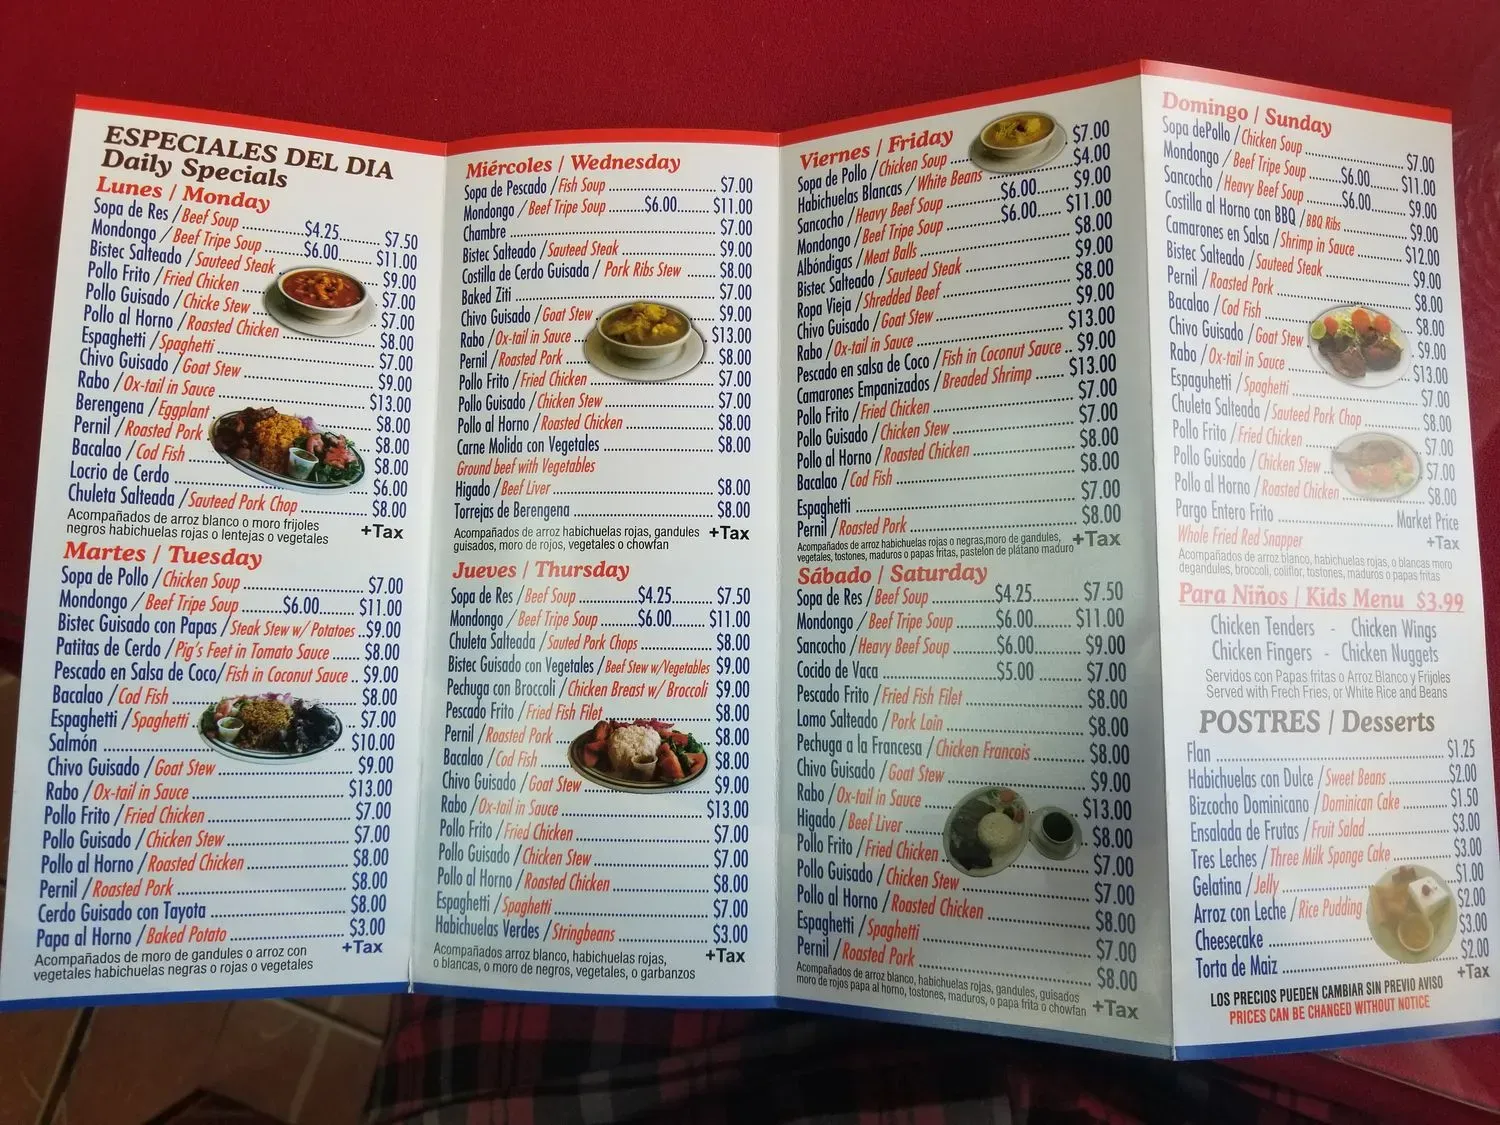 ESPECIALES DEL DIA
Daily Specials
Lunes / Monday
Sopa de Res / Beef Soup $4.25 $7.50
Mondongo / Beef Tripe Soup $6.00 $11.00
Bistec Salteado / Sauteed Steak $9.00
Pollo Frito / Fried Chicken $7.00
Pollo Guisado / Chicke Stew $7.00
Pollo al Horno / Roasted Chicken $8.00
Espaghetti / Spaghetti $7.00
Chivo Guisado / Goat Stew $9.00
Rabo / Ox-tail in Sauce $13.00
Berengena / Eggplant $8.00
Pernil / Roasted Pork $8.00
Bacalao / Cod Fish $8.00
Locrio de Cerdo $6.00
Chuleta Salteada / Sauteed Pork Chop $8.00
Acompañados de arroz blanco o moro frijoles
negros habichuelas rojas o lentejas o vegetales +Tax
Martes / Tuesday
Sopa de Pollo / Chicken Soup $7.00
Mondongo / Beef Tripe Soup $6.00 $11.00
Bistec Guisado con Papas / Steak Stew w/ Potatoes $9.00
Patitas de Cerdo / Pig's Feet in Tomato Sauce $8.00
Pescado en Salsa de Coco / Fish in Coconut Sauce $9.00
Bacalao / Cod Fish $8.00
Espaghetti / Spaghetti $7.00
Salmón $10.00
Chivo Guisado / Goat Stew $9.00
Rabo / Ox-tail in Sauce $13.00
Pollo Frito / Fried Chicken $7.00
Pollo Guisado / Chicken Stew $7.00
Pollo al Horno / Roasted Chicken $8.00
Pernil / Roasted Pork $8.00
Cerdo Guisado con Tayota $8.00
Papa al Horno / Baked Potato $3.00
Acompañados de moro de gandules o arroz con
vegetales habichuelas negras o rojas o vegetales +Tax
Miércoles / Wednesday
Sopa de Pescado / Fish Soup $7.00
Mondongo / Beef Tripe Soup $6.00 $11.00
Chambre $7.00
Bistec Salteado / Sauteed Steak $9.00
Costilla de Cerdo Guisada / Pork Ribs Stew $8.00
Baked Ziti $7.00
Chivo Guisado / Goat Stew $9.00
Rabo / Ox-tail in Sauce $13.00
Pernil / Roasted Pork $8.00
Pollo Frito / Fried Chicken $7.00
Pollo Guisado / Chicken Stew $7.00
Pollo al Horno / Roasted Chicken $8.00
Carne Molida con Vegetales $8.00
Ground beef with Vegetables
Higado / Beef Liver $8.00
Torrejas de Berengena $8.00
Acompañados de arroz habichuelas rojas, gandules
guisados, moro de rojos, vegetales o chowfan +Tax
Jueves / Thursday
Sopa de Res / Beef Soup $4.25 $7.50
Mondongo / Beef Tripe Soup $6.00 $11.00
Chuleta Salteada / Sauted Pork Chops $8.00
Bistec Guisado con Vegetales / Beef Stew w/Vegetables $9.00
Pechuga con Broccoli / Chicken Breast w/ Broccoli $9.00
Pescado Frito / Fried Fish Filet $8.00
Pernil / Roasted Pork $8.00
Bacalao / Cod Fish $8.00
Chivo Guisado / Goat Stew $9.00
Rabo / Ox-tail in Sauce $13.00
Pollo Frito / Fried Chicken $7.00
Pollo Guisado / Chicken Stew $7.00
Pollo al Horno / Roasted Chicken $8.00
Espaghetti / Spaghetti $7.00
Habichuelas Verdes / Stringbeans $3.00
Acompañados arroz blanco, habichuelas rojas,
o blancas, o moro de negros, vegetales, o garbanzos +Tax
Viernes / Friday
Sopa de Pollo / Chicken Soup $7.00
Habichuelas Blancas / White Beans $4.00
Sancocho / Heavy Beef Soup $6.00 $9.00
Mondongo / Beef Tripe Soup $6.00 $11.00
Albóndigas / Meat Balls $8.00
Bistec Salteado / Sauteed Steak $9.00
Ropa Vieja / Shredded Beef $8.00
Chivo Guisado / Goat Stew $9.00
Rabo / Ox-tail in Sauce $13.00
Pescado en salsa de Coco / Fish in Coconut Sauce $9.00
Camarones Empanizados / Breaded Shrimp $13.00
Pollo Frito / Fried Chicken $7.00
Pollo Guisado / Chicken Stew $7.00
Pollo al Horno / Roasted Chicken $8.00
Bacalao / Cod Fish $8.00
Espaghetti $7.00
Pernil / Roasted Pork $8.00
Acompañados de arroz habichuelas rojas o negras,moro de gandules,
vegetales, tostones, maduros o papas fritas, pastelon de plátano maduro +Tax
Sábado / Saturday
Sopa de Res / Beef Soup $4.25 $7.50
Mondongo / Beef Tripe Soup $6.00 $11.00
Sancocho / Heavy Beef Soup $6.00 $9.00
Cocido de Vaca $5.00 $7.00
Pescado Frito / Fried Fish Filet $8.00
Lomo Salteado / Pork Loin $8.00
Pechuga a la Francesa / Chicken Francois $8.00
Chivo Guisado / Goat Stew $9.00
Rabo / Ox-tail in Sauce $13.00
Higado / Beef Liver $8.00
Pollo Frito / Fried Chicken $7.00
Pollo Guisado / Chicken Stew $7.00
Pollo al Horno / Roasted Chicken $8.00
Espaghetti / Spaghetti $7.00
Pernil / Roasted Pork $8.00
Acompañados de arroz blanco, habichuelas rojas, gandules, guisados
moro de rojos papa al horno, tostones, maduros, o papa frita o chowfan +Tax
Domingo / Sunday
Sopa dePollo / Chicken Soup $7.00
Mondongo / Beef Tripe Soup $6.00 $11.00
Sancocho / Heavy Beef Soup $6.00 $9.00
Costilla al Horno con BBQ / BBQ Ribs $9.00
Camarones en Salsa / Shrimp in Sauce $12.00
Bistec Salteado / Sauteed Steak $9.00
Pernil / Roasted Pork $8.00
Bacalao / Cod Fish $8.00
Chivo Guisado / Goat Stew $9.00
Rabo / Ox-tail in Sauce $13.00
Espaguhetti / Spaghetti $7.00
Chuleta Salteada / Sauteed Pork Chop $8.00
Pollo Frito / Fried Chicken $7.00
Pollo Guisado / Chicken Stew $7.00
Pollo al Horno / Roasted Chicken $8.00
Pargo Entero Frito Market Price
Whole Fried Red Snapper +Tax
Acompañados de arroz blanco, habichuelas rojas, o blancas moro
degandules, broccoli, coliflor, tostones, maduros o papas fritas
Para Niños / Kids Menu $3.99
Chicken Tenders - Chicken Wings
Chicken Fingers - Chicken Nuggets
Servidos con Papas fritas o Arroz Blanco y Frijoles
Served with Frech Fries, or White Rice and Beans
POSTRES / Desserts
Flan $1.25
Habichuelas con Dulce / Sweet Beans $2.00
Bizcocho Dominicano / Dominican Cake $1.50
Ensalada de Frutas / Fruit Salad $3.00
Tres Leches / Three Milk Sponge Cake $3.00
Gelatina / Jelly $1.00
Arroz con Leche / Rice Pudding $2.00
Cheesecake $3.00
Torta de Maiz $2.00
+Tax
LOS PRECIOS PUEDEN CAMBIAR SIN PREVIO AVISO
PRICES CAN BE CHANGED WITHOUT NOTICE